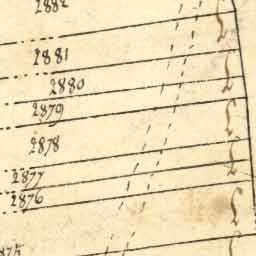 2882
2881
2880
2879
2878
2877
2876
2875